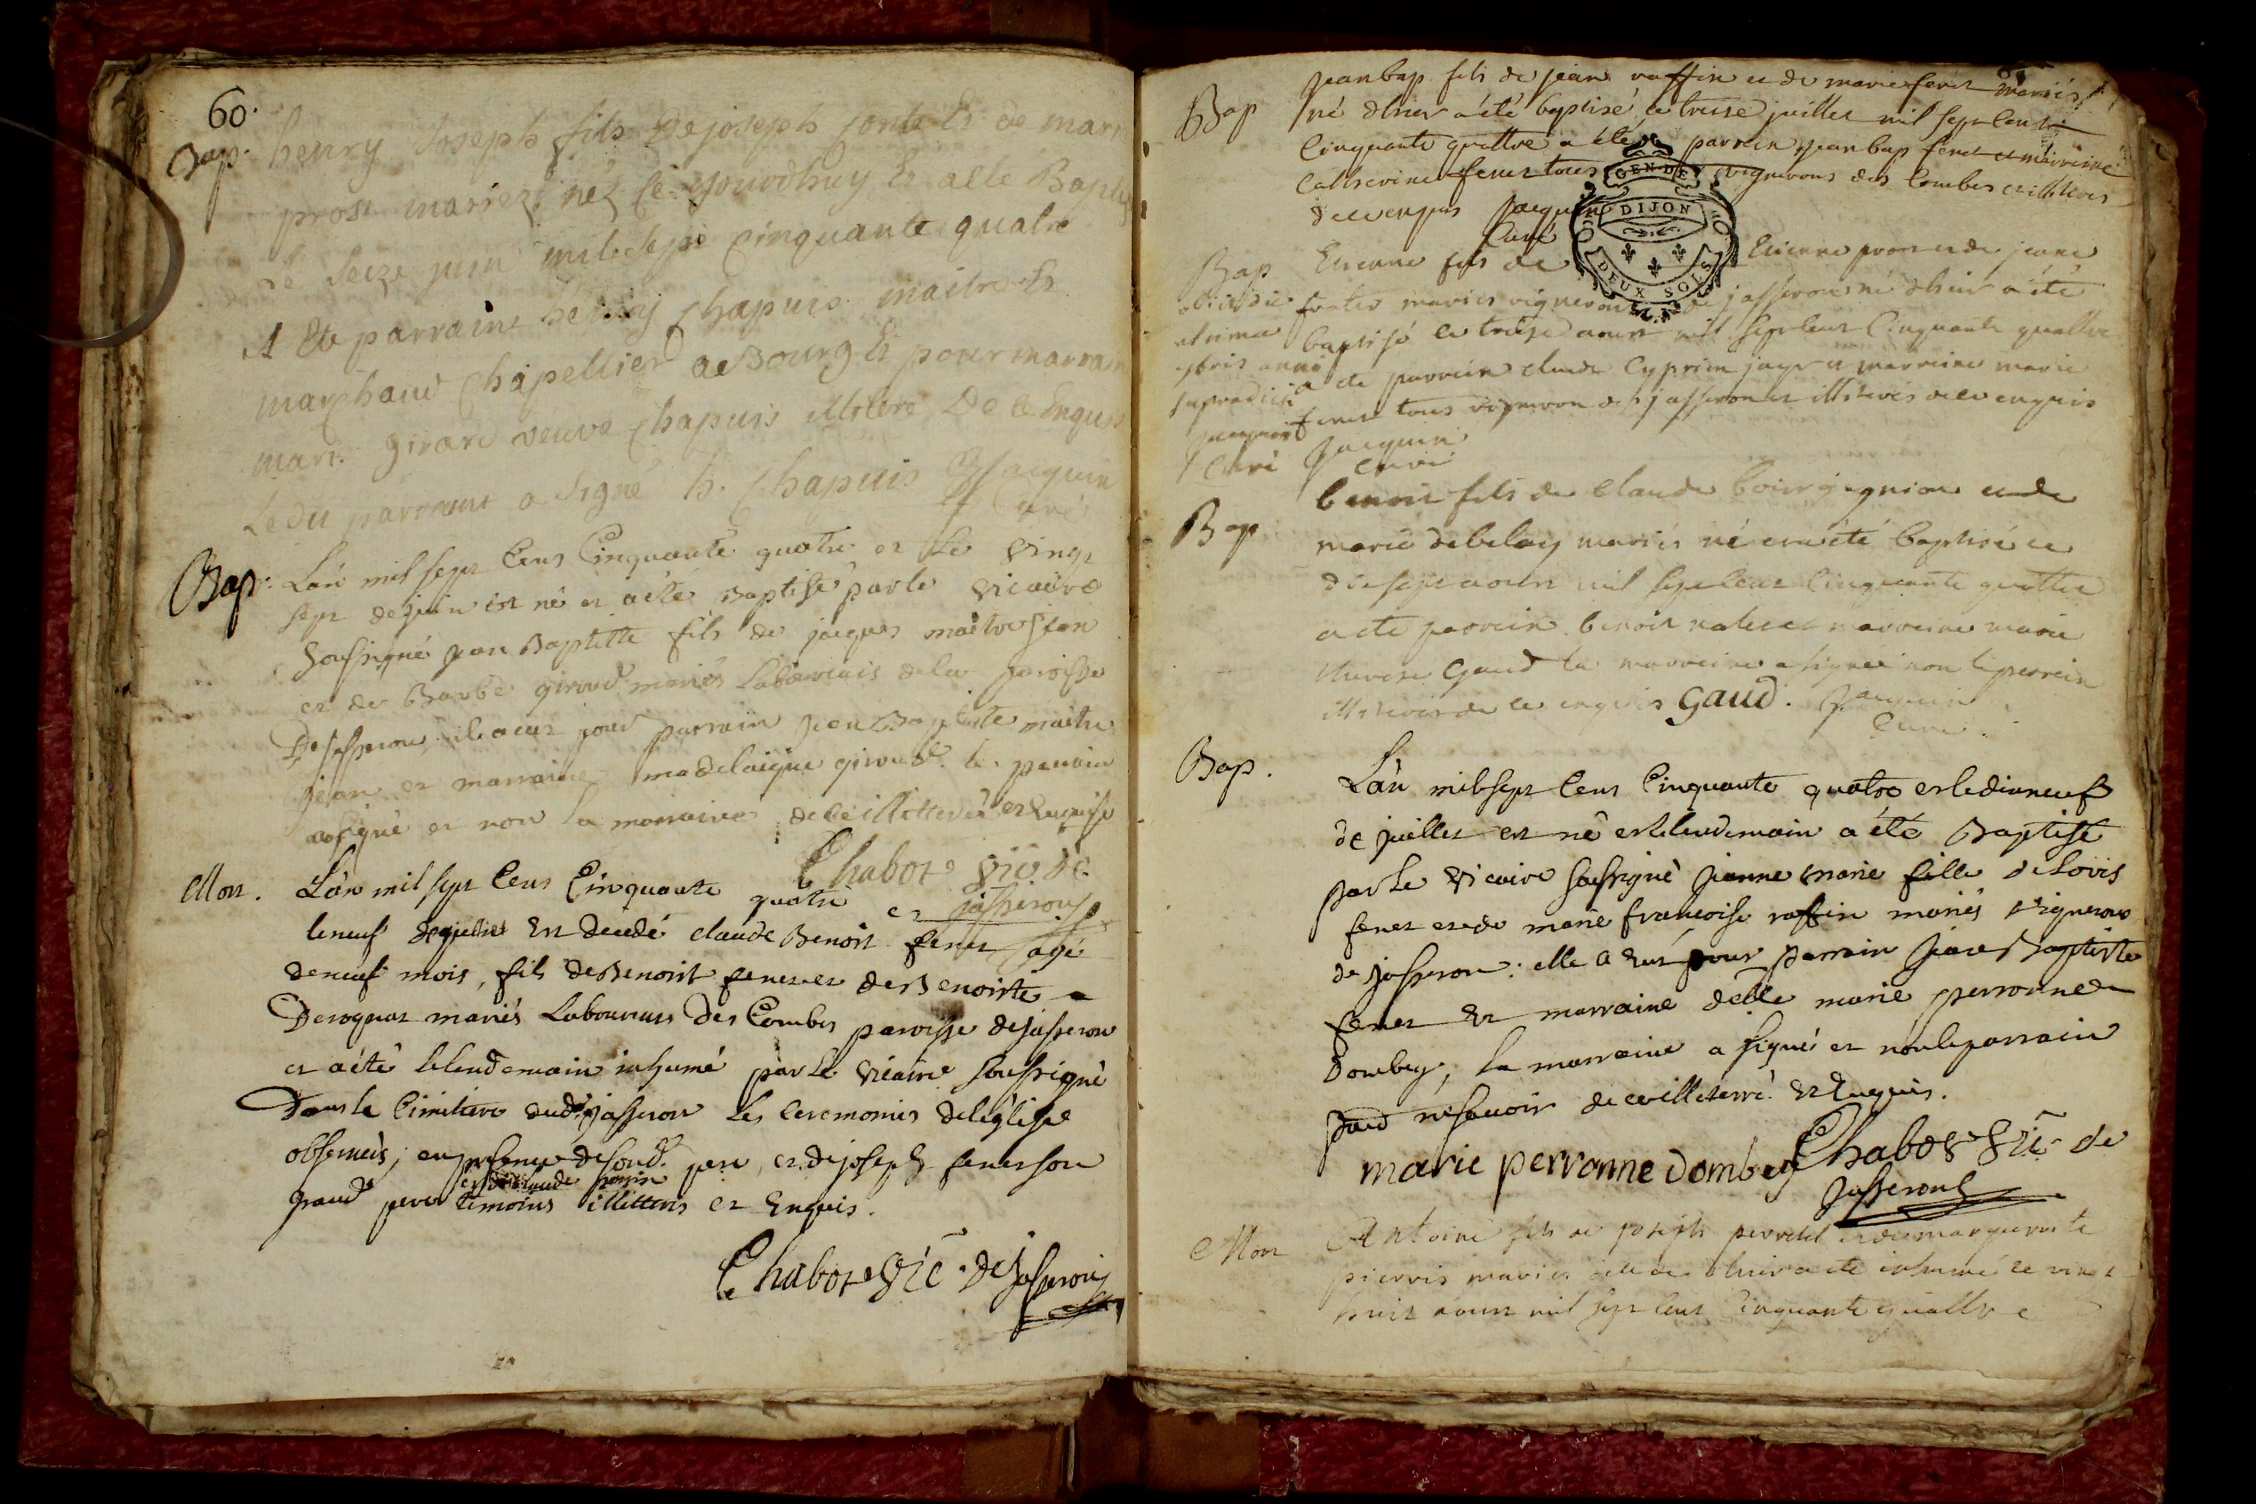 60.
Bap. henry Joseph fils De joseph Conte Et de mari
prost mariez nez Ce jourdhuy Et a esté Baptis
le seize juin mil sept Cinquante quatre
A Ete parraint henry Chapuis maitre Et
marchand Chapellier de Bourg Et pour marrain
mari girard veuve Chapuis illitere De ce Enquis
Ledit parraint a signé h. Chapuis Jacquin
Curé
Bap. L'an mil sept Cens Cinquante quatre et le vingt
sept de juin est né et a été Baptisé par le vicaire
soussigné jean Baptiste fils de jacques maitre jean
et de Barbe giroud mariés Laboureurs de la paroisse
De jasseron, il a eut pour parrain jean Baptiste maitre
jean et marraine madelaigne giroud. le parrain
a signé et non la marraine de ce illitterée et Enquise
Chabot vic de
jasseron
Mort. L'an mil sept Cens Cinquante quatre et
le neuf de juillet Est decedé claude Benoit feret agé
de neuf mois, fils de Benoit feret et de Benoiste
Deroquat mariés Laboureurs Des Combes paroisse de jasseron
et a été le lendemain inhumé par le vicaire soussigné
Dans le Cimitiere dud. jasseron les Ceremonies de l'église
observées; en presence de soud. pere, et de joseph feret son
et de claude
grand pere temoins illitterés et Enquis.
Chabot vic. de jasseron
Bap jean bap fils de jean raffin et de marie feret mariés
né d'hier a été baptisé le treise juillet mil sept cent
Cinquante quattre a été parrein jean bap feret et marreine
Catherine feret tous vignerons des Combes et illiterés
de ce enquis Jacquin
Curé
DIJON
DEUX SOLS
Bap Etienne fils de Etienne prost et de jeane
mariés vignerons de jasseron né d'hier a été
baptisé le treise aoust mil sept cent Cinquante quattre
a été parrein claude Cyprien et marreine marie
feret tous vignerons de jasseron et illiterés de ce enquis
Jacquin
Curé
Bap benoit fils de Claude bourgignion et de
marie debelay mariés né et a été baptisé le
dixsept aoust mil sept cent Cinquante quattre
a été parrein benoit et marreine marie
therese Gaud la marreine a signé non le parrein
illiteré de ce enquis Gaud. Jacquin
Curé.
Bap. L'an mil sept Cens Cinquante quatre et le dixneuf
de juillet est né et le lendemain a été Baptisé
par le vicaire soussigné jeanne marie fille de Louis
feret et de marie francoise raffin mariés vignerons
de jasseron: elle a Eut pour parrain jean Baptiste
feret et marraine delle marie perronne
Dombey, la marraine a signé et non le parrain
pour ne savoir de ce illiterré et Enquis.
marie perronne dombey Chabot vic. de
jasseron
Mort Antoine fils de joseph perrodet et de marguerite
mariés d'hier a été inhumé le vingt
huit aoust mil sept cent Cinquante quattre